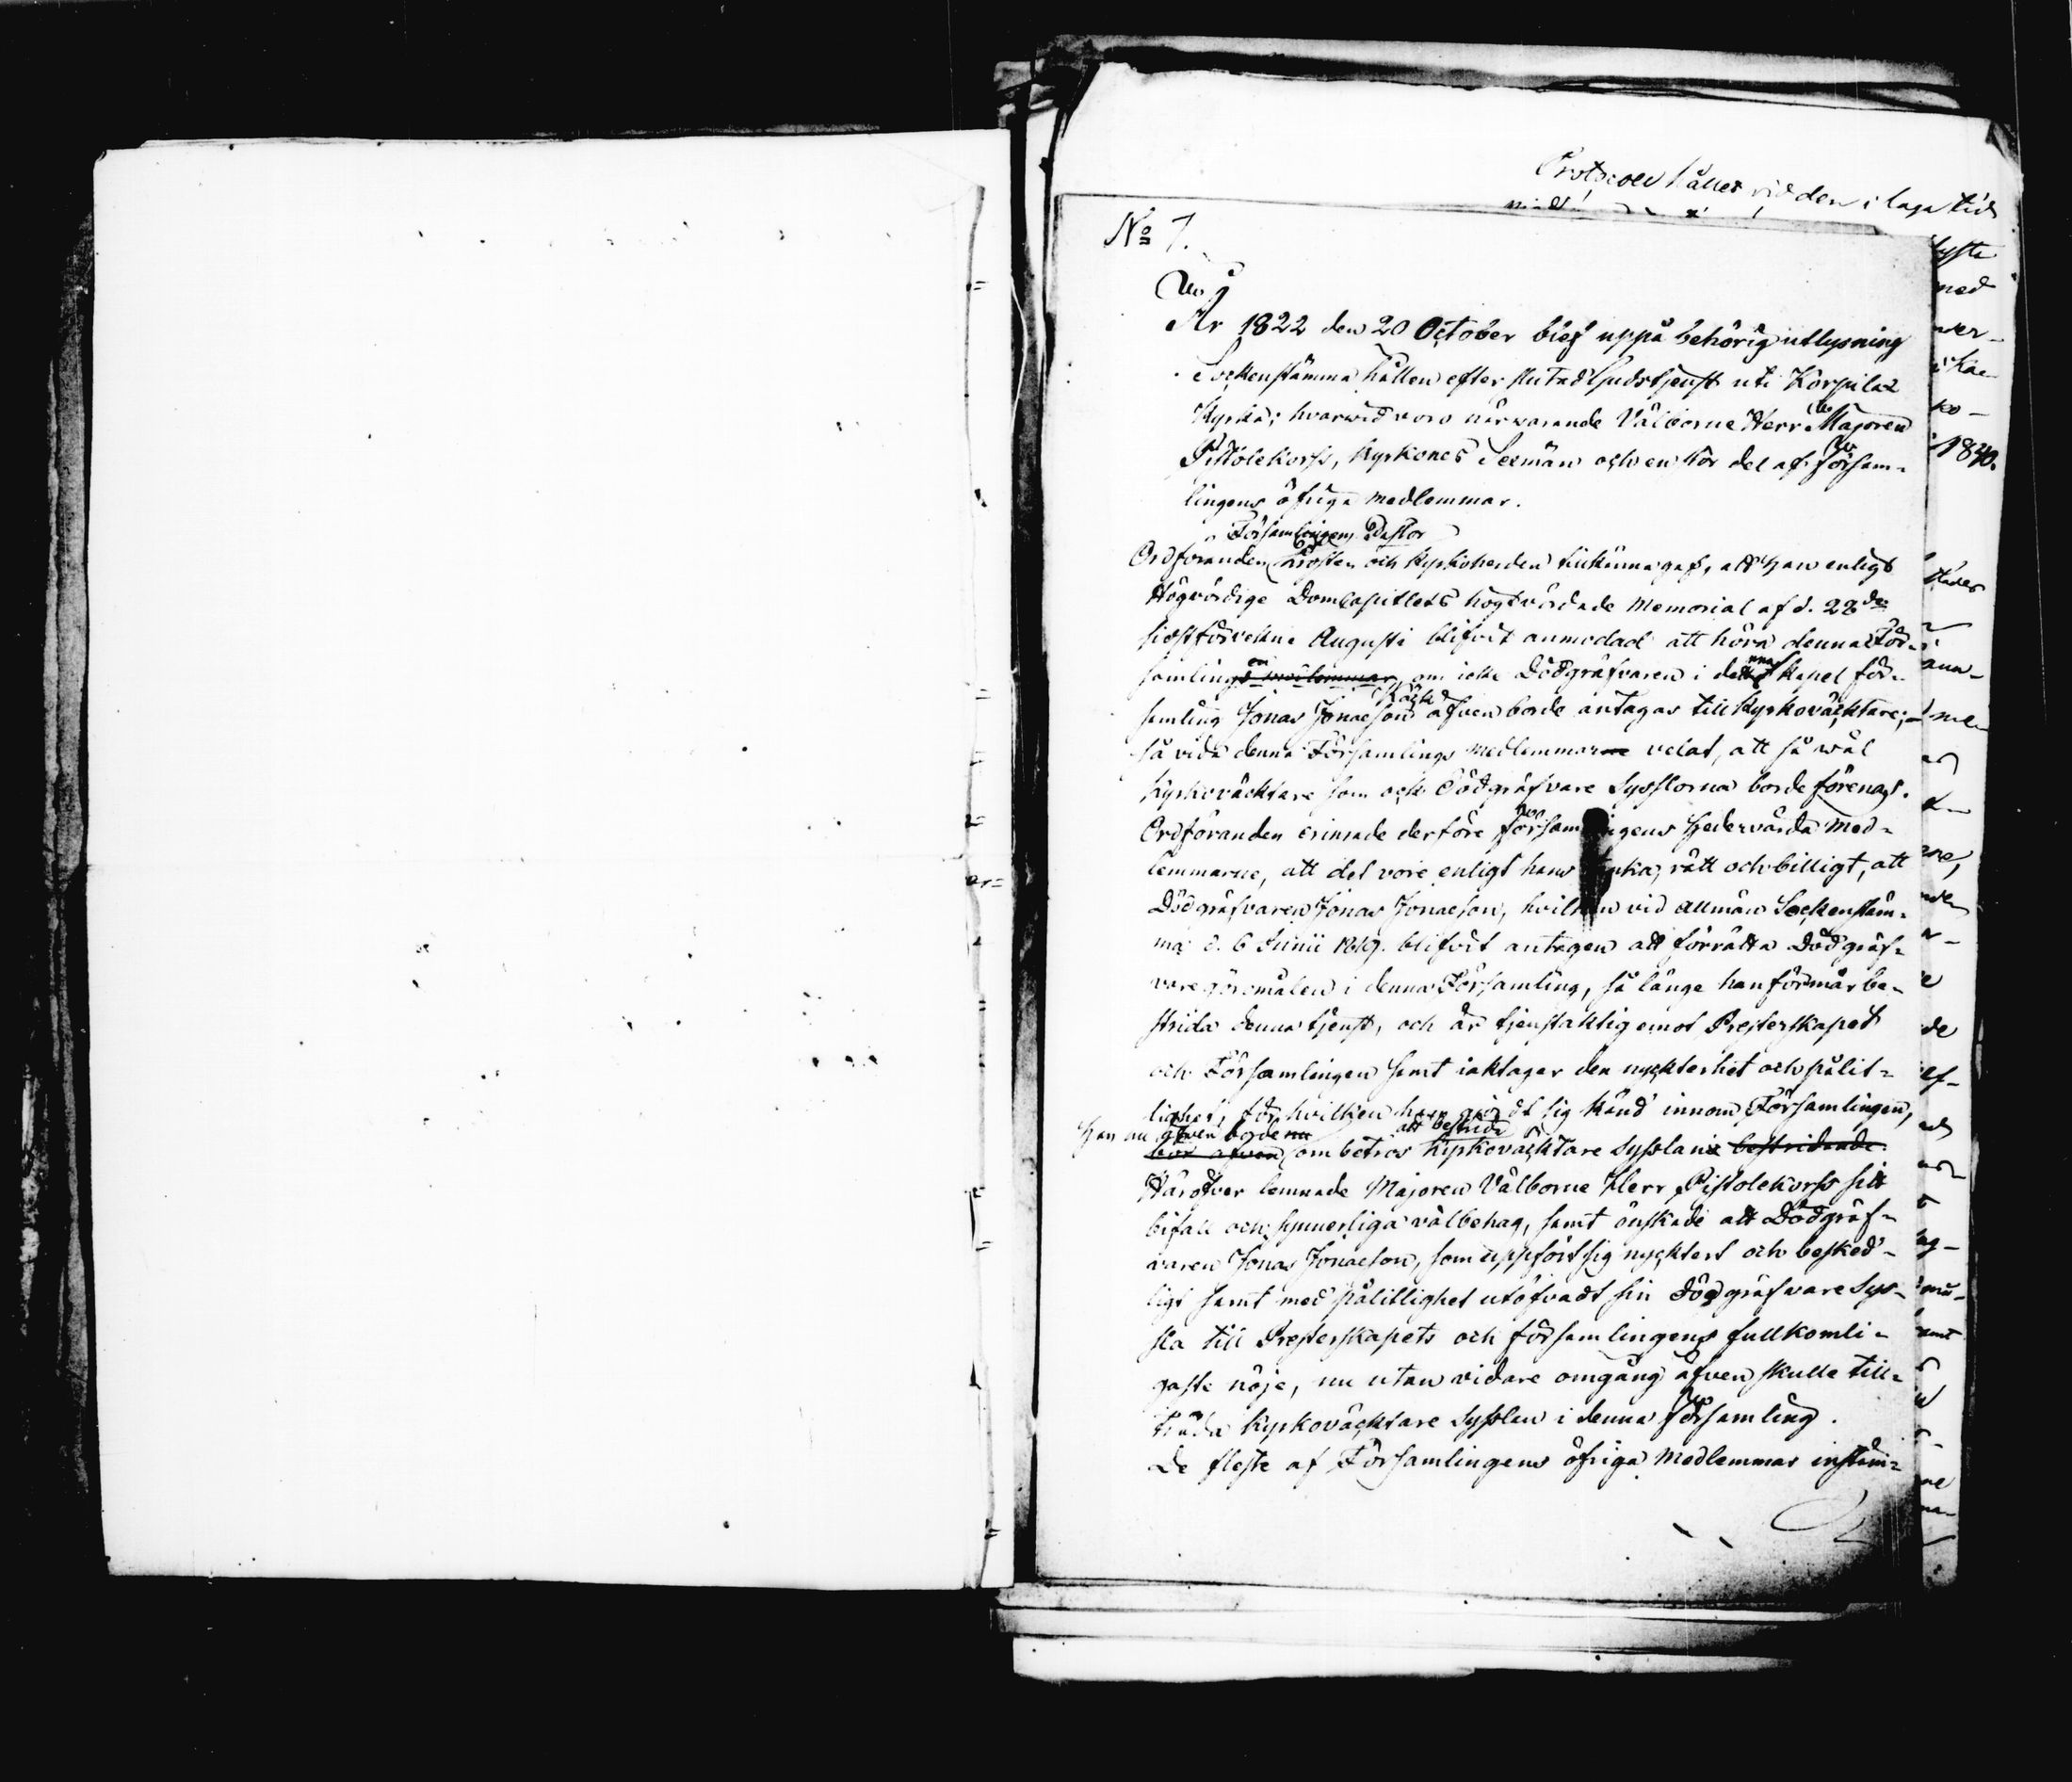 Protocoll hållet vid den i laga tid
No 7.
År 1822 den 20 October blef uppå behörig utlysning
Sockenstämma hållen efter slutad Gudstjenst uti Korpilax
Kyrka; hvarwid voro närvarande Välborne Herr Majoren
Pistolekorss, Kyrkones Sexmän och en stor del af försam-
lingens öfriga medlemmar.
Församlingens Pastor
Ordföranden Prosten och Kyrkoherden tilkänna gaf, att Han enligt
Högvördige DomCapitlets högtvördade Memorial af d. 28de
sistförvekne Augusti blifvit anmodad att höra denna För-
samling, om icke Dödgräfvaren i denna Kapel för-
samling Jonas Jonaeson äfven borde antagas till Kyrkoväcktare;
så vida denna Församlings medlemmar velat, att så wäl
Kyrkoväcktare som och Dödgräfvare Sysslorna borde förenas.
Ordföranden erinrade derföre församlingens hedervärda med-
lemmarne, att det vore enligt hans tanka, rätt och billigt, att
Dödgräfvaren Jonas Jonaeson, hvilken vid allmän Sockenstäm-
ma d. 6 Junii 1819. blifvit antagen att förrätta Dödgräf-
vare göromålen i denna Församling, så länge han förmår be-
strida denna tjenst, och är tjenstaktig emot Presterskapet
och Församlingen samt iaktager den nyckterhet och pålit-
lighet, för hvilken han gjordt sig känd innom Församlingen,
Han nu äfven borde nu att bestrida
bör äfven ombetros Kyrkoväcktare sysslan bestridande.
Häröfver lemnade Majoren Välborne Herr Pistolekorss sitt
bifall och synnerliga välbehag, samt önskade att Dödgräf-
varen Jonas Jonaeson, som uppfört sig nycktert och besked-
ligt samt med pålitlighet utöfvadt sin Dödgräfvare Sys-
sla till Presterskapets och församlingens fullkomli-
gaste nöje, nu utan vidare omgång äfven skulle till-
träda Kyrkoväcktare Sysslan i denna församling.
De fleste af Församlingens öfriga Medlemmar instäm-